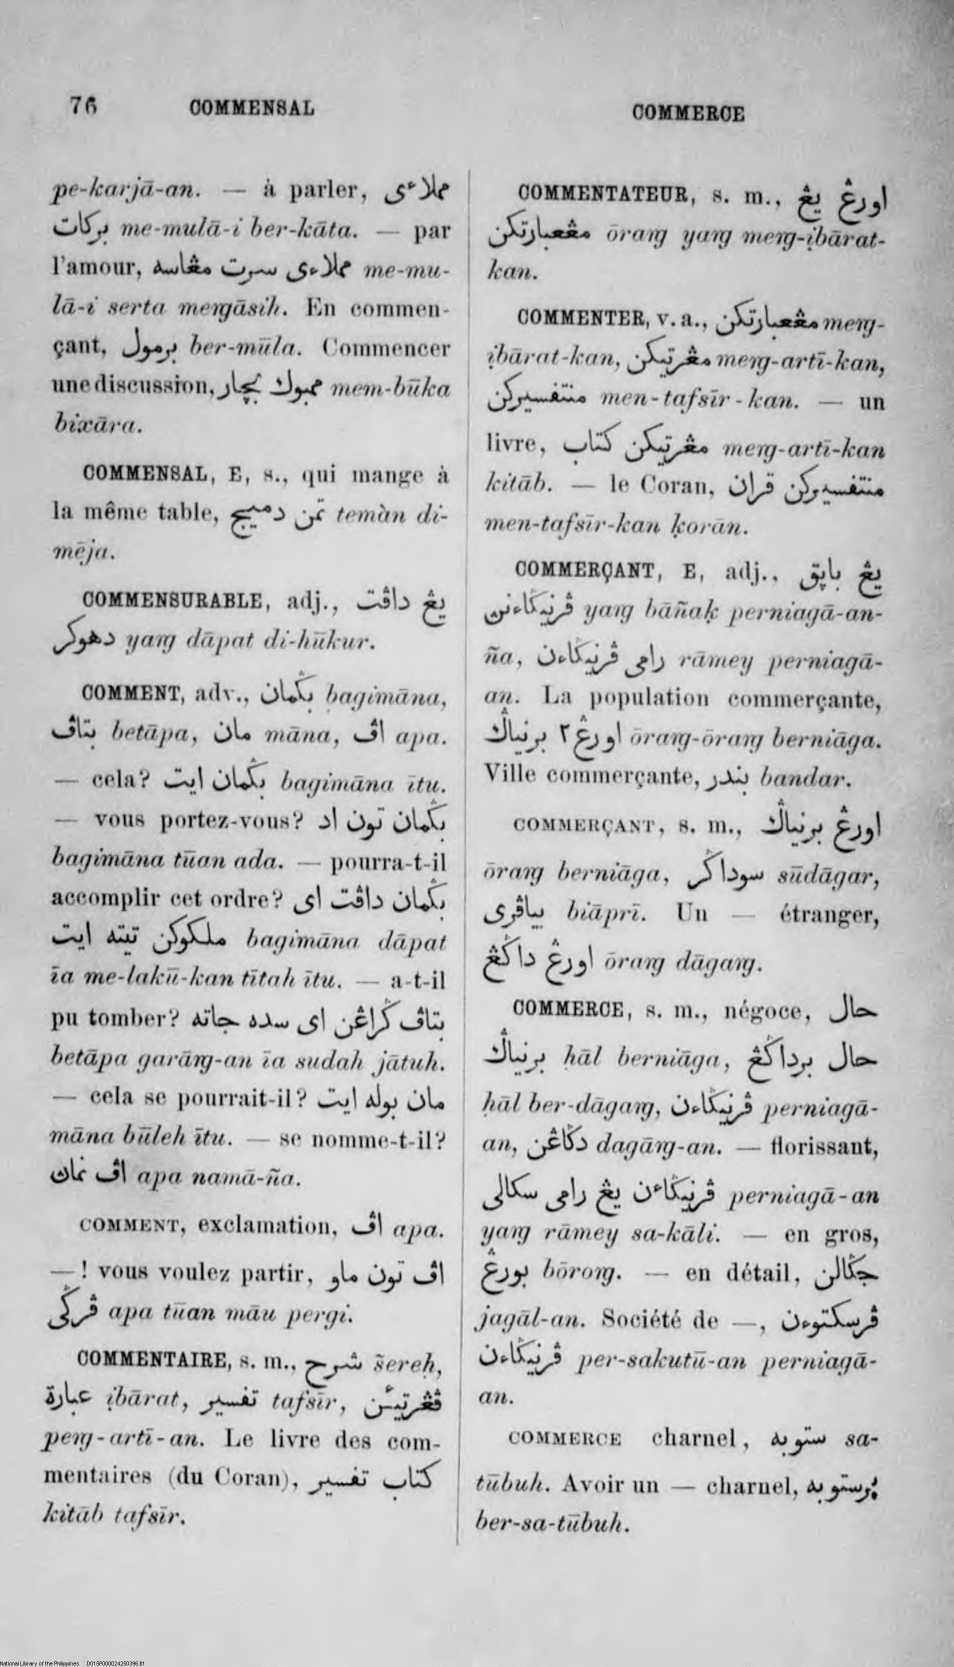 76 COMMENSAL COMMERCE
pe-karjā-an. — à parler, مملاءى
بركات me-mulā-i ber-kāta. — par
l'amour, مملاءى سرت مڠاسه me-mu-
lā-i serta meꬻgāsih. En commen-
çant, برمول ber-mūla. Commencer
une discussion, ممبوك بچار mem-būka
bixāra.
COMMENSAL, E, s., qui mange à
la même table, تمن دميج temàn di-
mēja.
COMMENSURABLE, adj., يڠ داڤت
دهوكر yaꬻg dāpat di-hūkur.
COMMENT, adv., بݢمان bagimāna,
بتاڤ betāpa, مان māna, اڤ apa.
— cela? بݢمان ايت bagimāna ītu.
— vous portez-vous? بݢمان تون اد
bagimāna tūan ada. — pourra-t-il
accomplir cet ordre? بݢمان داڤت اى
ملكوكن تيته ايت bagimāna dāpat
īa me-lakū-kan tītah ītu. — a-t-il
pu tomber? بتاڤ ݢراڠن اى سده جاته
betāpa garāꬻg-an īa sudah jātuh.
— cela se pourrait-il? مان بوله ايت
māna būleh ītu. — se nomme-t-il?
اڤ نماڽ apa namā-ña.
COMMENT, exclamation, اڤ apa.
—! vous voulez partir, اڤ تون ماو
ڤرݢى apa tūan māu pergi.
COMMENTAIRE, s. m., شرح šereḥ,
عبارة ịbārat, تفسير tafsīr, ڤڠرتيئن
peꬻg-artī-an. Le livre des com-
mentaires (du Coran), كتاب تفسير
kitāb tafsīr.
COMMENTATEUR, s. m., اورڠ يڠ
مڠعبارتكن ōraꬻg yaꬻg meꬻg-ịbārat-
kan.
COMMENTER, v. a., مڠعبارتكن meꬻg-
ịbārat-kan, مڠرتيكن meꬻg-artī-kan,
منتفسيركن men-tafsīr-kan. — un
livre, مڠرتيكن كتاب meꬻg-artī-kan
kitāb. — le Coran, منتفسيركن قران
men-tafsīr-kan ḳorān.
COMMERÇANT, E, adj., يڠ باڽق
ڤرنيݢاءنڽ yaꬻg bāñaḳ perniagā-an-
ña, رامى ڤرنيݢاءن rāmey perniagā-
an. La population commerçante,
اورڠ٢ برنياݢ ōraꬻg-ōraꬻg berniāga.
Ville commerçante, بندر bandar.
COMMERÇANT, s. m., اورڠ برنياݢ
ōraꬻg berniāga, سوداݢر sūdāgar,
بياڤرى biāprī. Un — étranger,
اورڠ داݢڠ ōraꬻg dāgaꬻg.
COMMERCE, s. m., négoce, حال
برنياݢ ḥāl berniāga, حال برداݢڠ
ḥāl ber-dāgaꬻg, ڤرنيݢاءن perniagā-
an, دݢاڠن dagāꬻg-an. — florissant,
ڤرنيݢاءن يڠ رامى سكالى perniagā-an
yaꬻg rāmey sa-kāli. — en gros,
بورڠ bōroꬻg. — en détail, جݢالن
jagāl-an. Société de —, ڤرسكتوءن
ڤرنيݢاءن per-sakutū-an perniagā-
an.
COMMERCE charnel, ستوبه sa-
tūbuh. Avoir un — charnel, برستوبه
ber-sa-tūbuh.
National Library of the Philippines